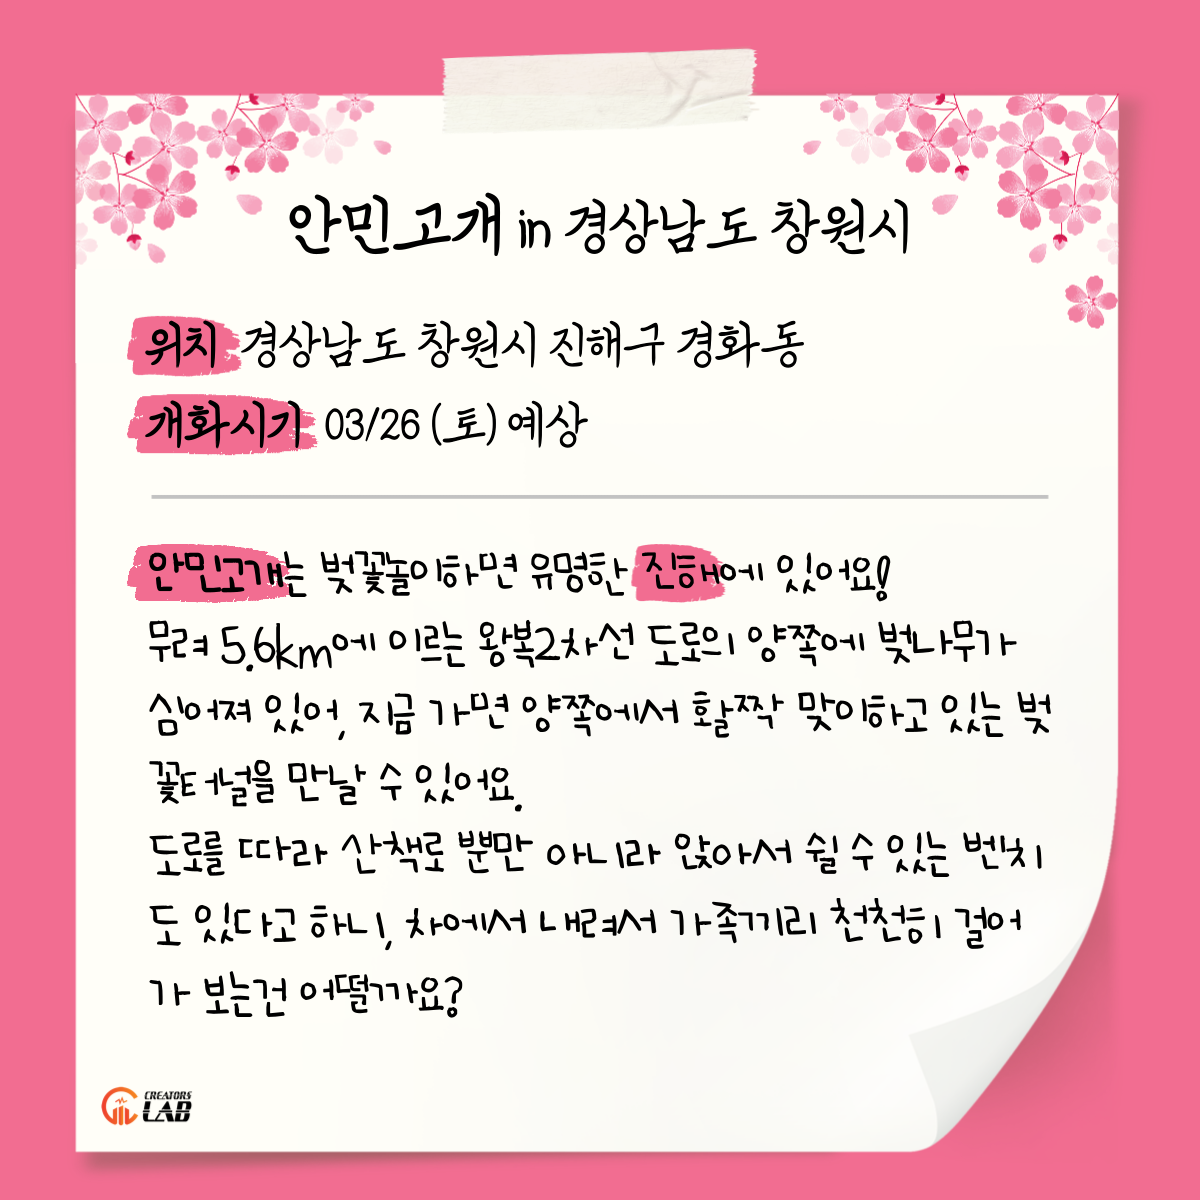 안민고개 in 경상남도 창원시
위치 경상남도 창원시 진해구 경화동
개화시기 03/26 (토) 예상
안민고개는 벚꽃놀이하면 유명한 진해에 있어요!
무려 5.6km에 이르는 왕복2차선 도로의 양쪽에 벚나무가
심어져 있어, 지금 가면 양쪽에서 활짝 맞이하고 있는 벚
꽃터널을 만날 수 있어요.
도로를 따라 산책로 뿐만 아니라 앉아서 쉴 수 있는 벤치
도 있다고 하니, 차에서 내려서 가족끼리 천천히 걸어
가 보는건 어떨까요?
CREATORS
LAB